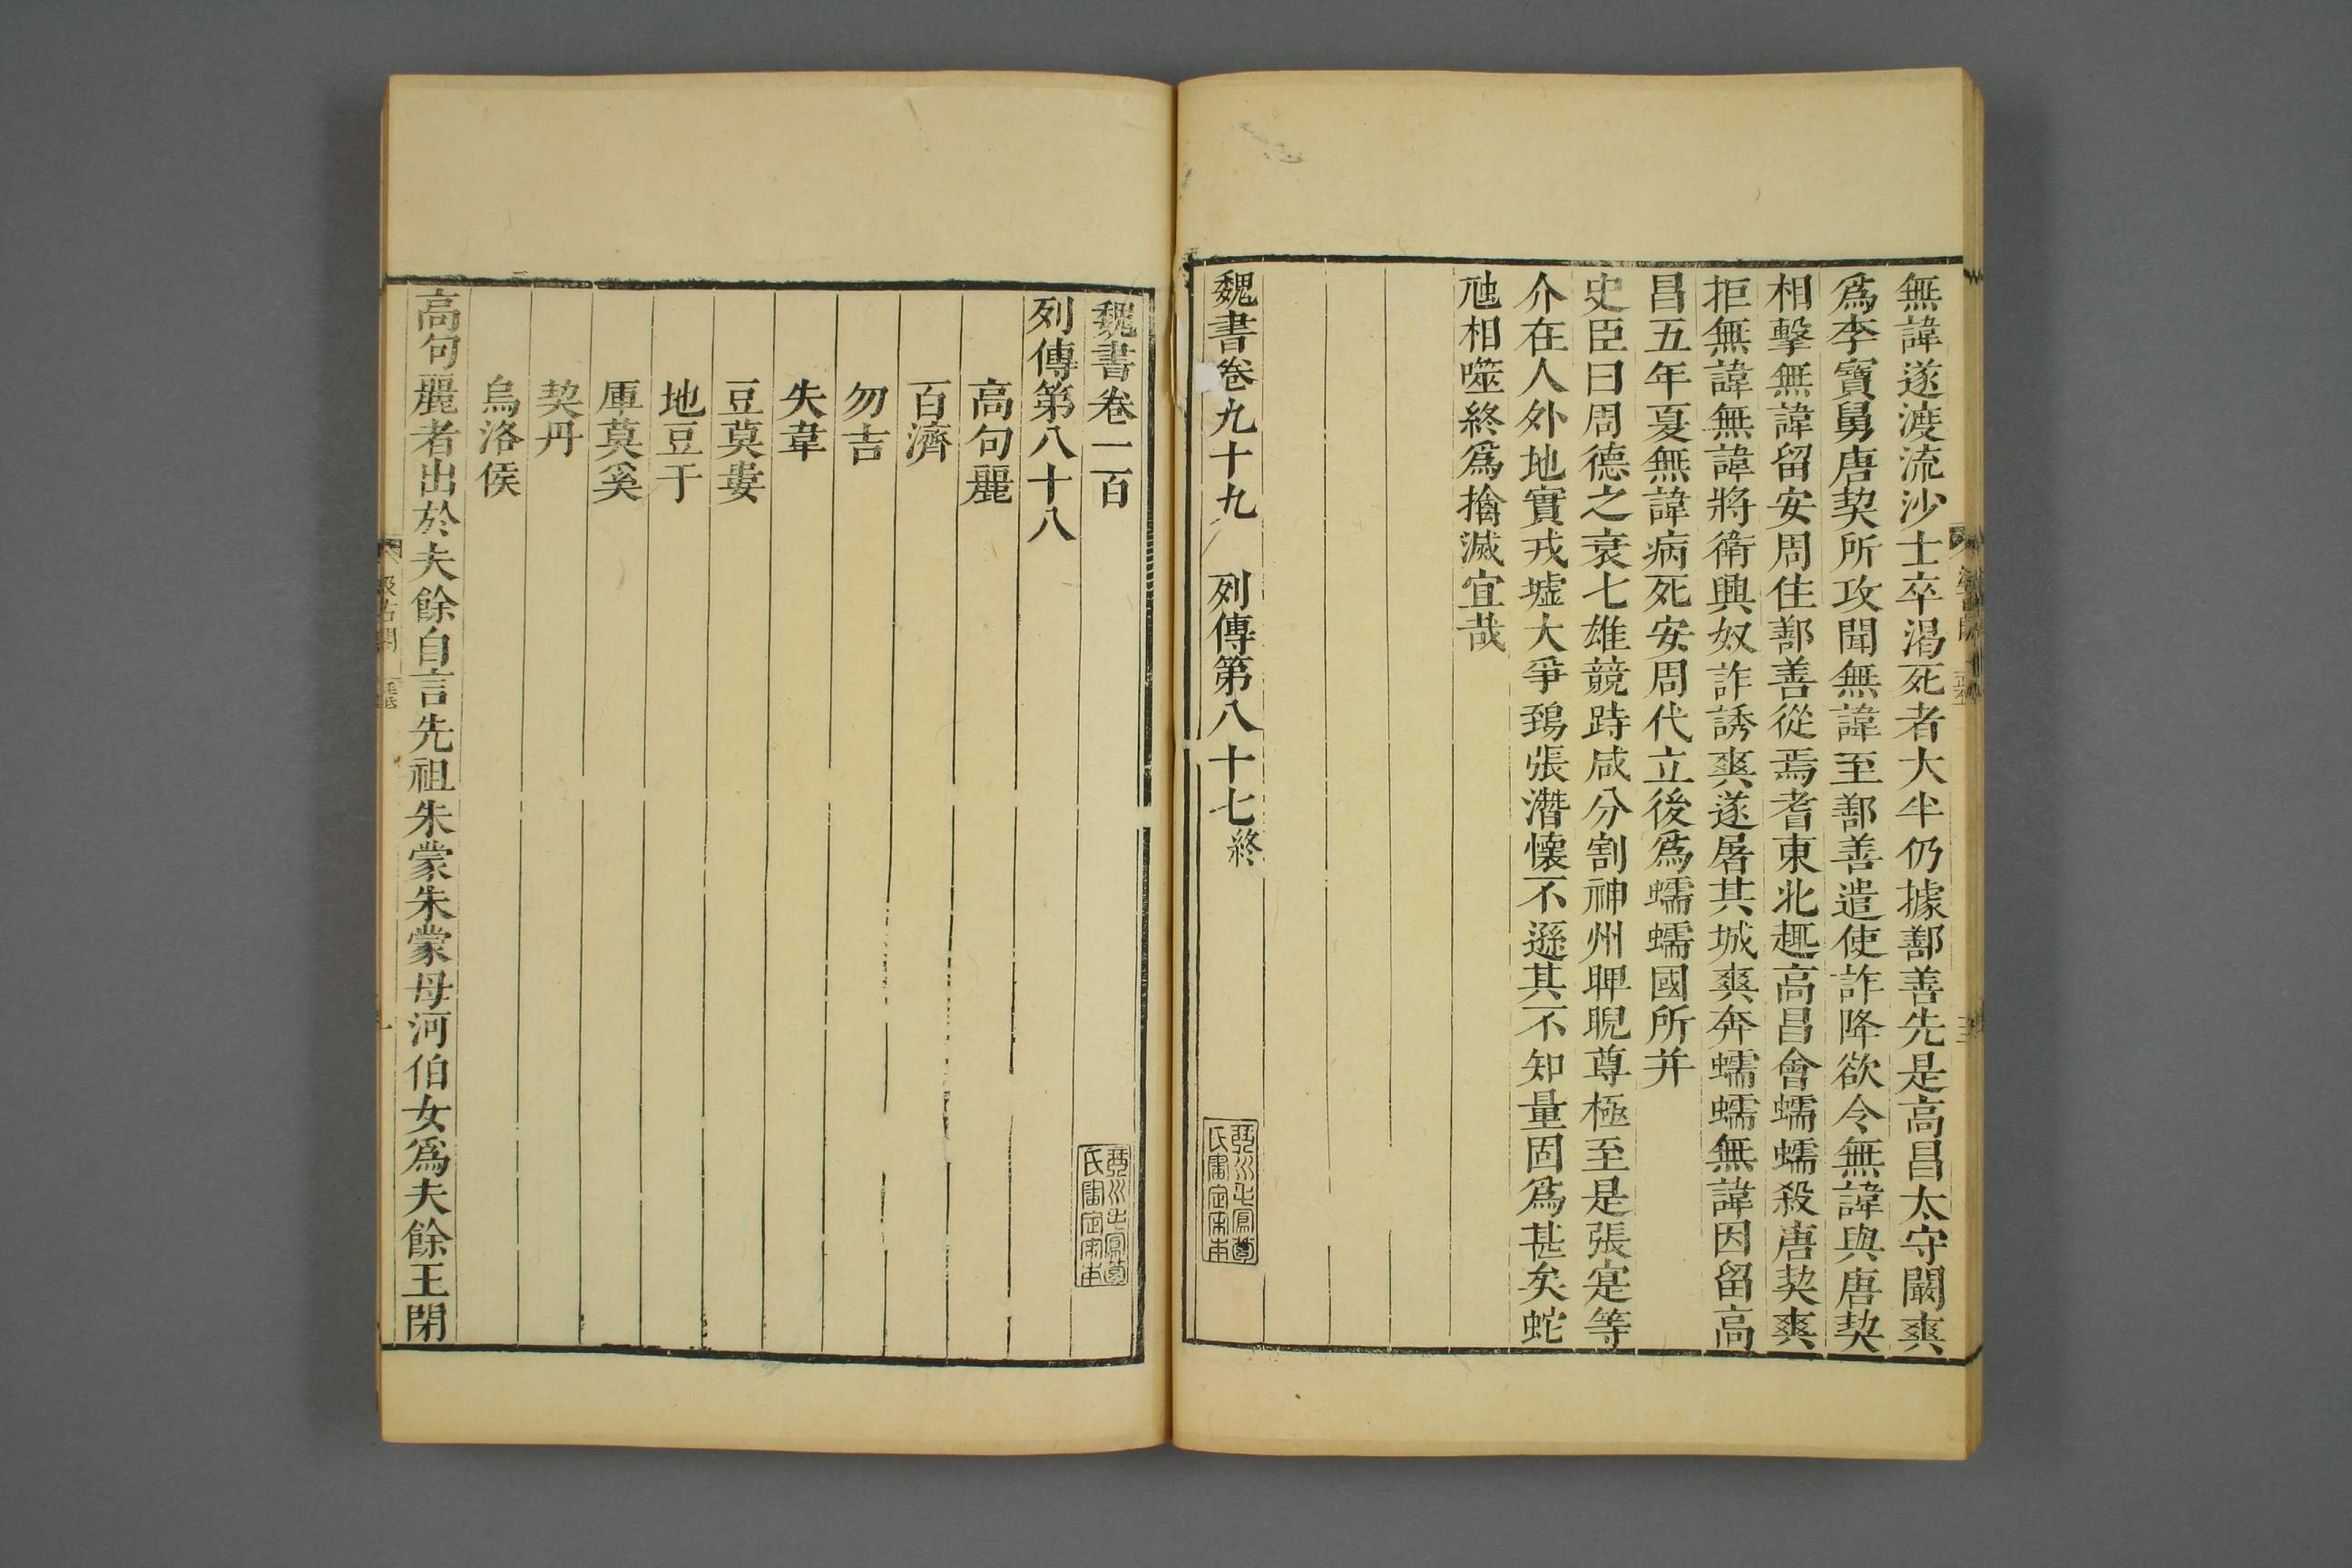 無諱遂渡流沙士卒渴死者大半仍據鄯善先是高昌太守闞爽
爲李寶舅唐契所攻聞無諱至鄯善遣使詐降欲令無諱與唐契
相擊無諱留安周住鄯善從焉耆東北趣高昌會蠕蠕殺唐契爽
拒無諱無諱將衞興奴詐誘爽遂屠其城爽奔蠕蠕無諱因留高
昌五年夏無諱病死安周代立後爲蠕蠕國所并
史臣曰周德之衰七雄競跱咸分割神州睥睨尊極至是張寔等
介在人外地實戎墟大爭鵄張潛懷不遜其不知量固爲甚矣蛇
虺相噬終爲擒滅宜哉
魏書卷九十九 列傳第八十七終
魏書卷一百
列傳第八十八
高句麗
百濟
勿吉
失韋
豆莫婁
地豆于
庫莫奚
契丹
烏洛侯
高句麗者出於夫餘自言先祖朱蒙朱蒙母河伯女爲夫餘王閉